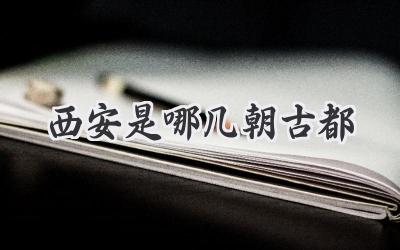 西安是哪几朝古都